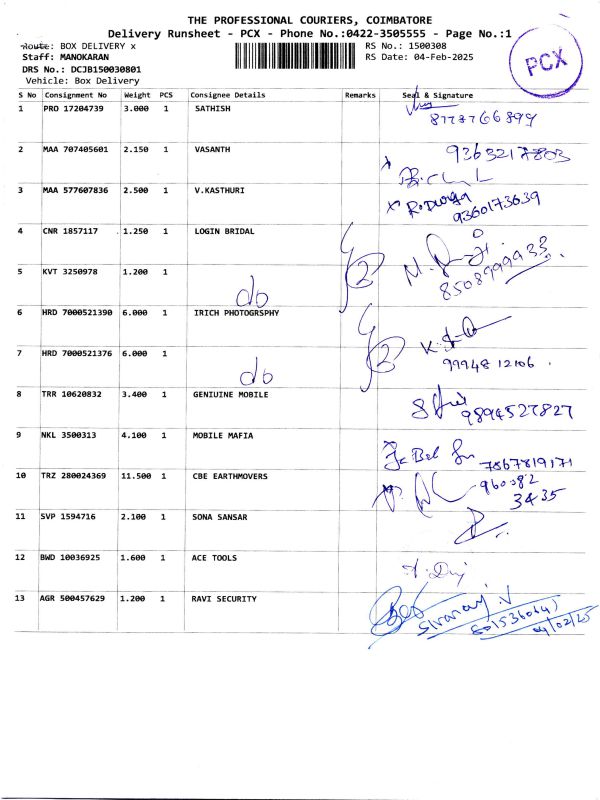 THE PROFESSIONAL COURIERS, COIMBATORE
Delivery Runsheet - PCX - Phone No.:0422-3505555 - Page No.:1
Route: BOX DELIVERY x
RS No.: 1500308
Staff: MANOKARAN
RS Date: 04-Feb-2025
DRS No.: DCJB150030801
Vehicle: Box Delivery
PCX
S No Consignment No Weight PCS Consignee Details Remarks Seal & Signature
1 PRO 17204739 3.000 1 SATHISH
8778766899
2 MAA 707405601 2.150 1 VASANTH 9363217803
3 MAA 577607836 2.500 1 V.KASTHURI x R.Durga
9360173639
4 CNR 1857117 1.250 1 LOGIN BRIDAL
5 KVT 3250978 1.200 1 do 2 8508999933
6 HRD 7000521390 6.000 1 IRICH PHOTOGRSPHY
7 HRD 7000521376 6.000 1 do 2 99948 12106
8 TRR 10620832 3.400 1 GENIUINE MOBILE 9894527827
9 NKL 3500313 4.100 1 MOBILE MAFIA 7867819171
10 TRZ 280024369 11.500 1 CBE EARTHMOVERS 960082
3435
11 SVP 1594716 2.100 1 SONA SANSAR
12 BWD 10036925 1.600 1 ACE TOOLS
13 AGR 500457629 1.200 1 RAVI SECURITY
Sivaraj.V
04/02/25